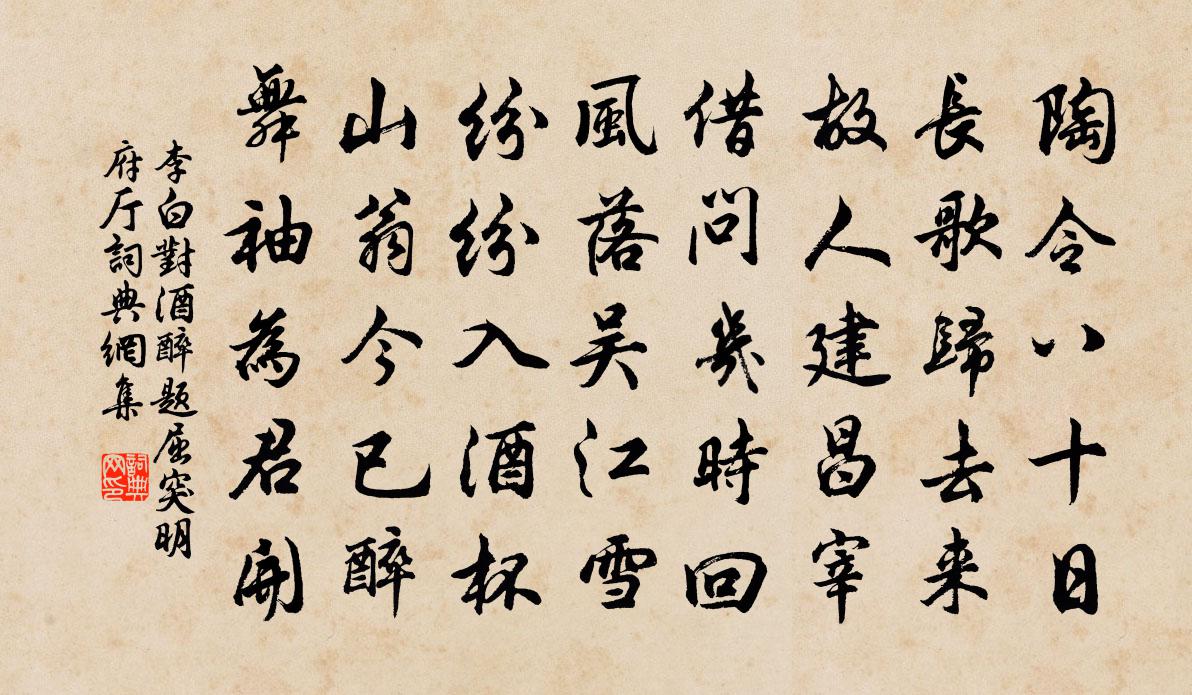 陶令八十日
長歌歸去来
故人建昌宰
借問幾時回
風落吴江雪
紛紛入酒杯
山翁今已醉
舞袖為君開
李白對酒醉題屈突明
府厅詞典網集
詞典
网印